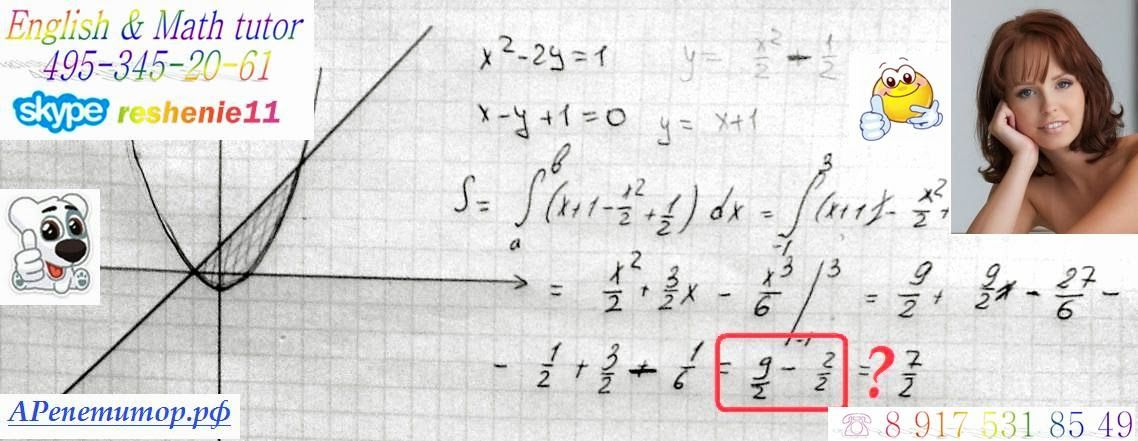 English & Math tutor
495-345-20-61
skype reshenie11
x²-2y=1 y= x²/2 - 1/2
x-y+1=0 y= x+1
S= ∫ₐᵇ (x+1-x²/2+1/2) dx = ∫₋₁³ (x+1)- x²/2 +
= x²/2 + 3/2x - x³/6 /₋₁³ = 9/2 + 9/2 - 27/6 -
- 1/2 + 3/2 - 1/6 = 9/2 - 2/2 = ? 7/2
АРепетитор.рф
☏ 8 917 531 85 49